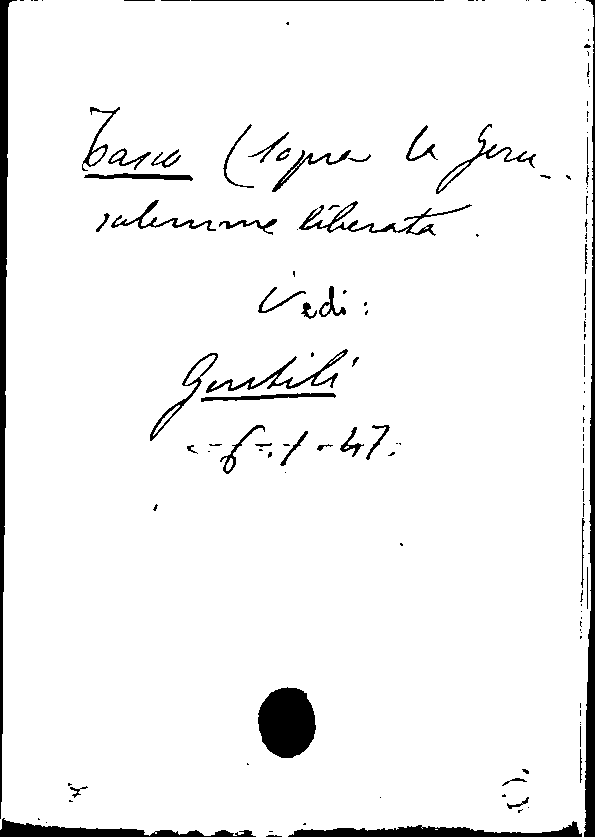 Tasso (Sopra la Geru-
salemme liberata.
Vedi:
Gentili
6.1.47.